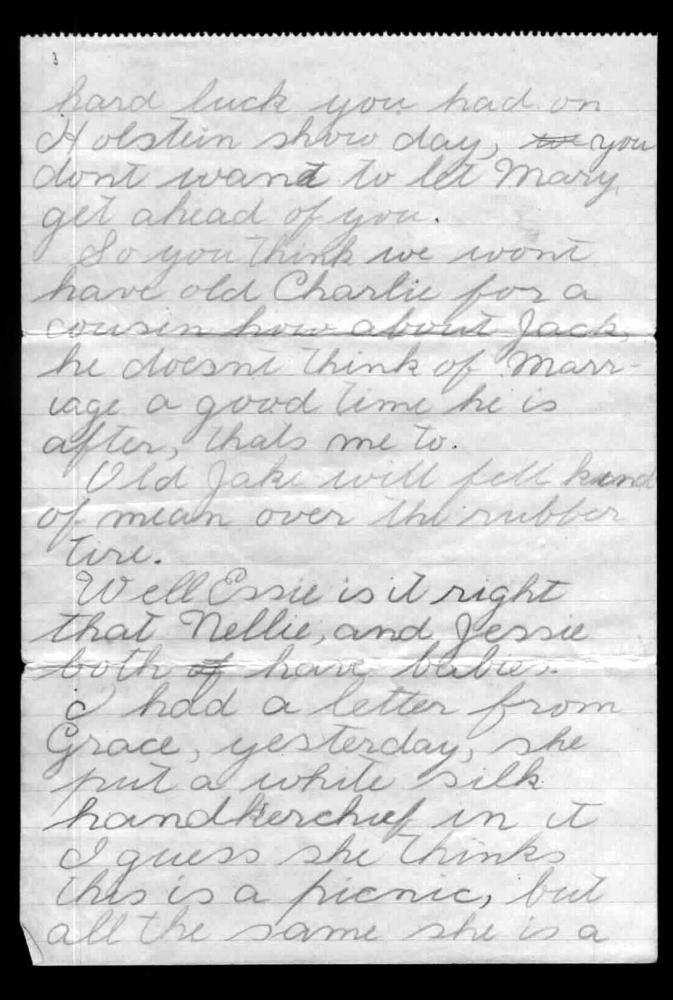 3
hard luck you had on
Holstein show day, ~~we~~ you
dont want to let Mary
get ahead of you.
So you think we wont
have old Charlie for a
cousin how about Jack,
he doesnt think of Marr-
iage a good time he is
after, thats me to.
Old Jake will fell kind
of mean over the rubber
tire.
Well Essie is it right
that Nellie, and Jessie
both ~~of~~ have babies.
I had a letter from
Grace, yesterday, she
put a white silk
handkerchief in it
I guess she thinks
this is a picnic, but
all the same she is a